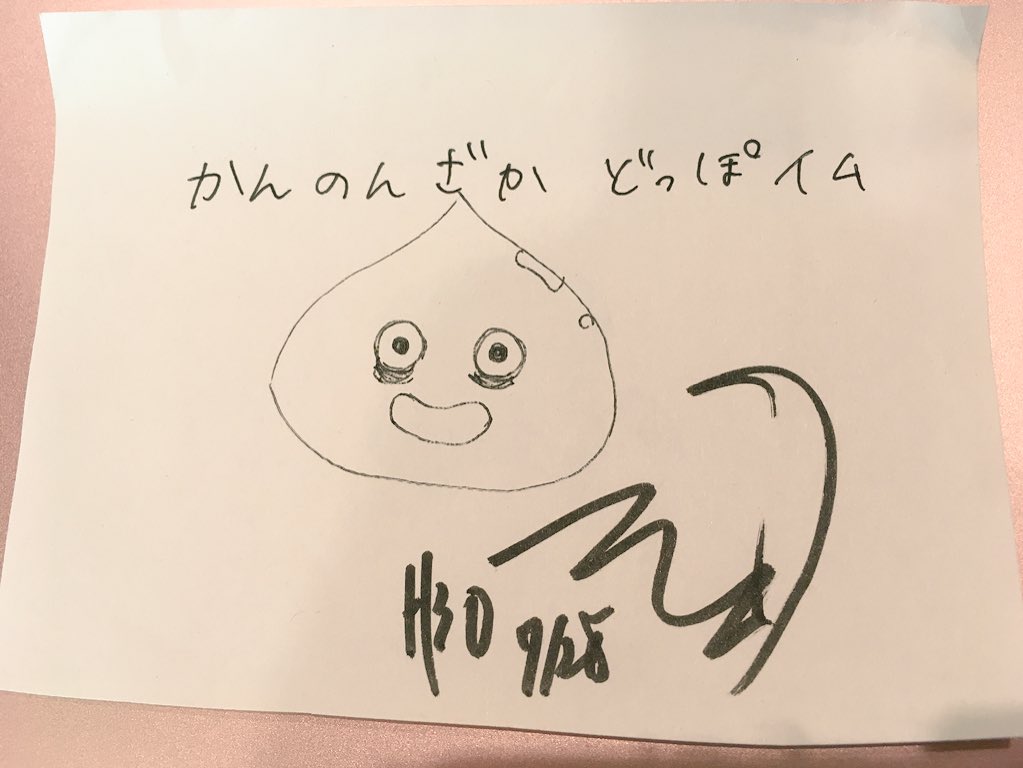 かんのんざか どっぽイム
H30
9/28